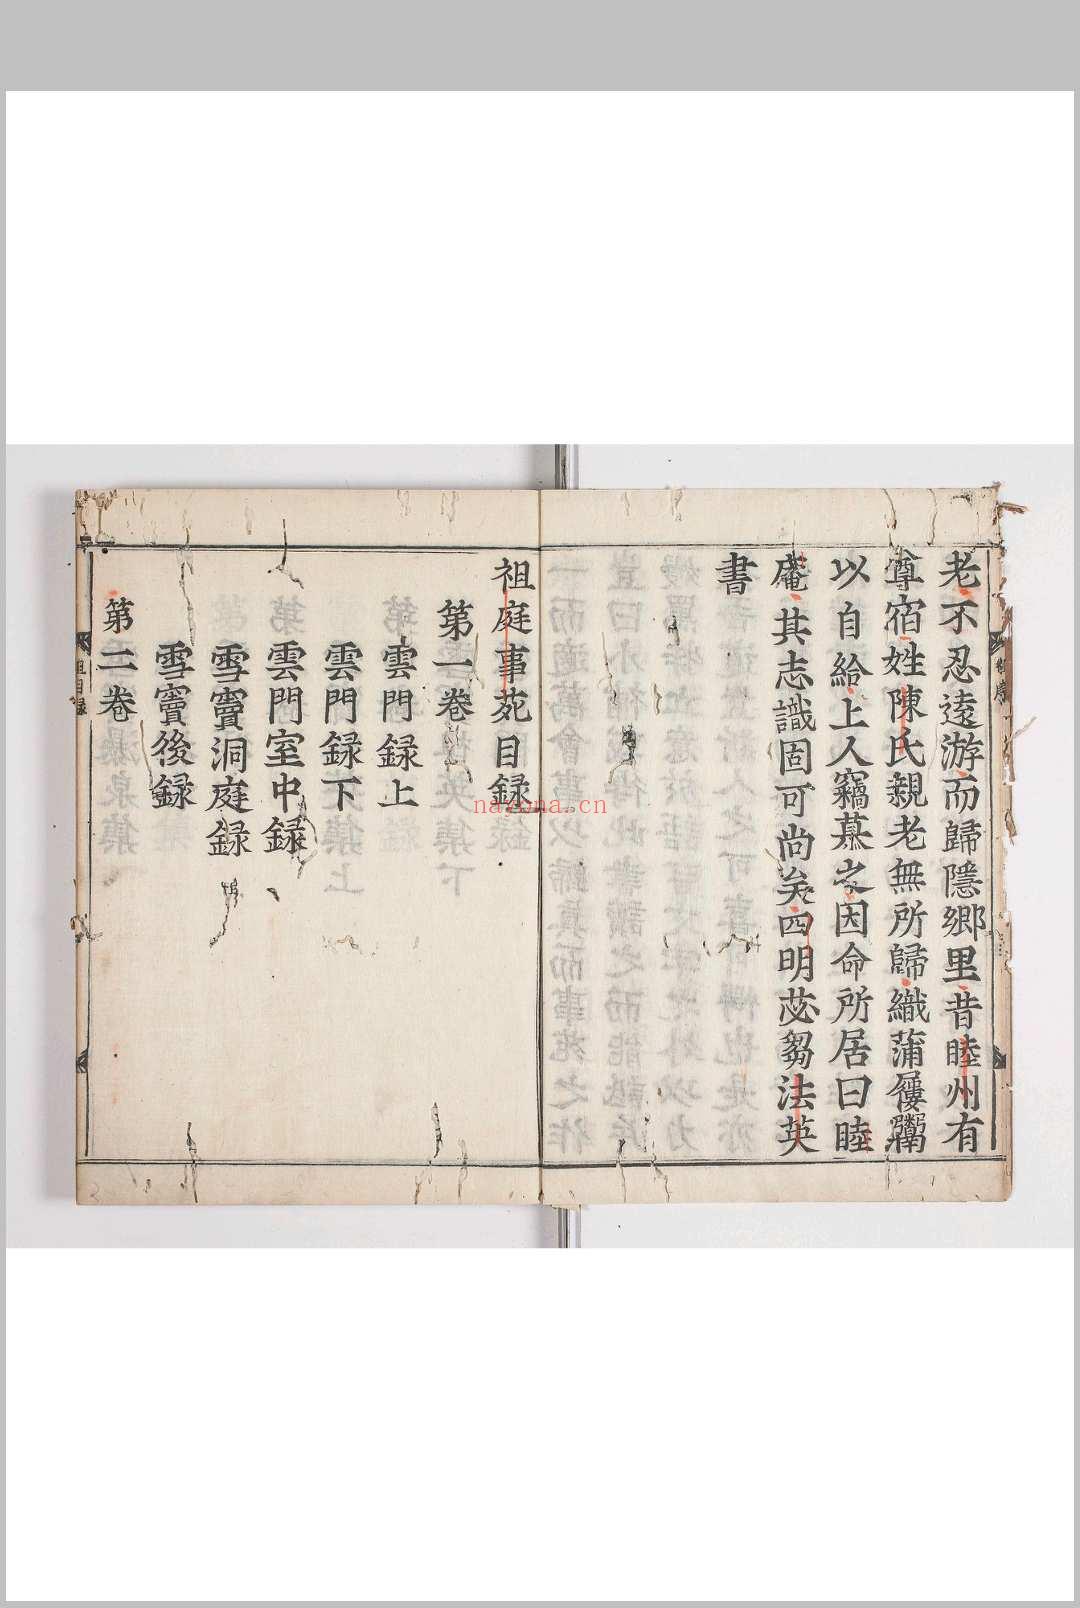 老不忍遠游而歸隱鄉里昔睦州有
尊宿姓陳氏親老無所歸織蒲屨鬻
以自給上人竊慕之因命所居曰睦
庵其志識固可尚矣四明苾芻法英
書
祖庭事苑目録
第一卷
雲門録上
雲門録下
雲門室中録
雪竇洞庭録
雪竇後録
第二卷
nazona.cn